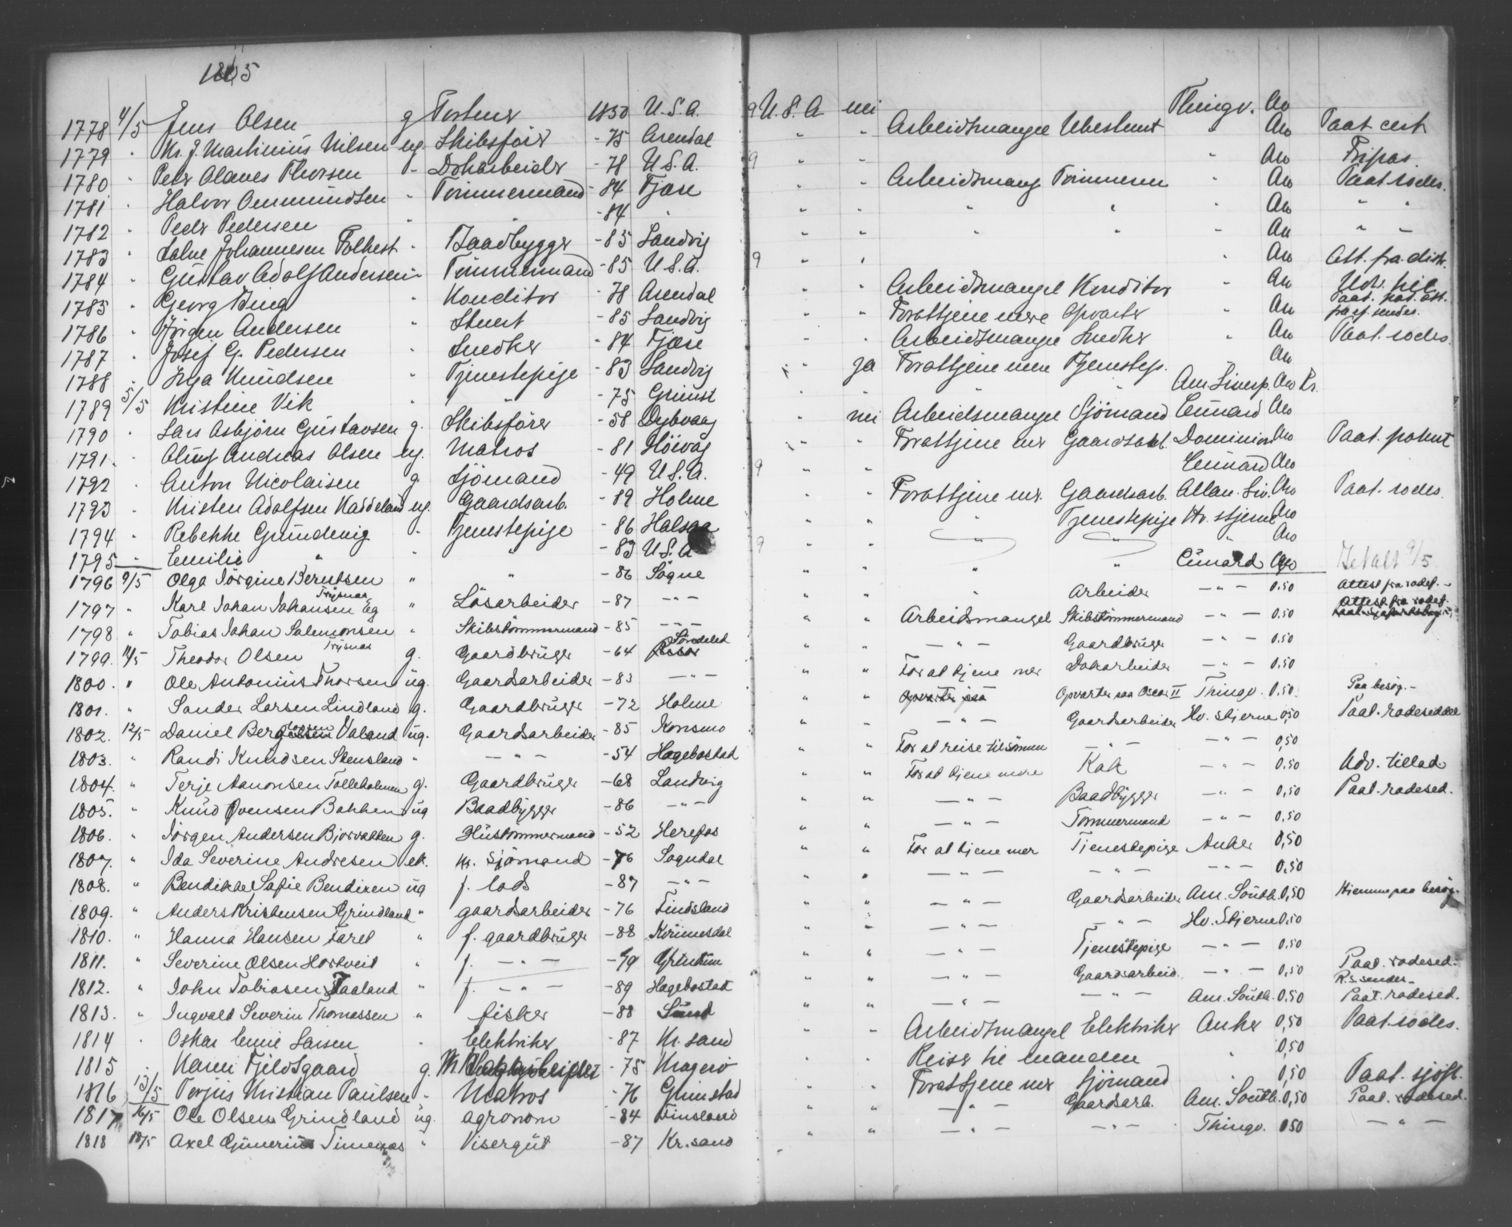 1905
1778 4/5 Jens Olsen g Portner 1850 U.S.A. 9 U.S.A nei Thingv. Ao
1779 " Kr. J. Martinius Nilsen ug. Skibsfører -75 Arendal " " Arbeidsmangel Ubestemt " Ao Paat. cert
1780 " Peder Olaves Thorsen " Dokarbeider -78 U.S.A. 9 " " " Ao Fripas
1781 " Halvor Ommundsen " Tømmermand -84 Fjære " " Arbeidsmang Tømmerm " Ao Paat. rodes.
1782 " Peder Pedersen " " -84 " " " " " " Ao " "
1783 " Johannesen " Baadbygger -85 Landvig " " " " " Ao " "
1784 " Gustav Adolf Andersen " Tømmermand -85 U.S.A. 9 " " " Ao Att. fra distr.
1785 " Georg Bing " Konditor -78 Arendal " " Arbeidsmangel Konditor " Ao
1786 " Jørgen Andersen " Stuert -85 Landvig " " For at tjene mere Opvarter " Ao
1787 " Josef G. Pedersen " Snedker -84 Fjære " " Arbeidsmangel Snedker " Ao Paat. rodes.
1788 " Inga Knudsen " Tjenestepige -83 Landvig " ja For at tjene mere Tjenestep. Ao
1789 5/5 Kristine Vik " " -75 Grimst " " " " Am. Liverp. Ao Kr.
1790 " Lars Asbjørn Gustavsen g. Skibsfører -58 Dybvaag " nei Arbeidsmangel Sjømand Cunard Ao
1791. " Oluf Andreas Olsen ug. Matros -81 Høivåg " " For at tjene mer Gaardsarb. Dominion Ao Paat. patent
1792 " Anton Nicolaisen g. Sjømand -49 U.S.A. 9 " " Cunard Ao
1793 " Kristen Adolfsen Kaddeland ug. Gaardsarb. -89 Holme " " For at tjene mer. Gaardsarb. Allan. Liv. Ao Paat. rodes.
1794 " Rebekke Grundevig " Tjenestepige -86 Halsaa " " " Tjenestepige Hv. stjerne Ao
1795 " Emilie " " -83 U.S.A 9 " " " " Ao
1796 9/5 Olga Jørgine Berntsen " " -86 Søgne " " " " Cunard Ao Betalt 9/5
1797 " Karl Johan Johansen Eg " Løsarbeider -87 — " — " " " Arbeider — " — 0.50 Attest fra rodef.
1798 " Tobias Johan Salomonsen " Skibstømmermand -85 — " — " " Arbeidsmangel Skibstømmermand — " — 0.50 Attest fra rodef.
1799. 11/5 Theodor Olsen g. Gaardbruger -64 Søndeled " " — " — Gaardbruger — " — 0.50
1800. " Ole Antonius Thorsen ug. Gaardsarbeider -83 — " — " " For at tjene mer Dokarbeider — " — 0.50
1801. " Sander Larsen Lindland g. Gaardbruger -72 Holme " " Opvarter paa Oscar II Thingv. 0.50. Paa besøg.
1802. 12/5 Daniel Valand ug. Gaardsarbeider -85 Konsmo " " — " — Gaardsarbeider Hv. stjerne 0,50 Paat. rodeseddel
1803. " Randi Knudsen Stensland " — " — -54 Hægebostad " " For at reise til sønnen — " — — " — 0,50
1804. " Terje Aanonsen Tolleholmen g. Gaardbruger -68 Landvig " " For at tjene mere Kok — " — 0.50 Udv. tillad
1805. " Knud Svensen Bakken ug Baadbygger -86 — " — " " — " — Baadbygger — " — 0,50 Paat. rodesed.
1806. " Jørgen Andersen Bjorvatten g. Hustømmermand -52 Herefos " " — " — Tømmermand — " — 0.50
1807. " Ida Severine Andresen ek. m. sjømand -76 Sogndal " " For at tjene mer Tjenestepige Anker 0,50
1808. " Bendikte Sofie Bendixen ug f. lods -87 — " — " " — " — — " — — " — 0.50
1809. " Anders Kristensen Grindland " gaardsarbeider -76 Finsland " " — " — Gaardsarbeider Am. South. 0,50 Hjemme paa besøg.
1810. " Hanna Hansen Faret " f. gaardbruger -88 Kvinesdal " " — " — — " — Hv. Stjerne 0.50
1811. " Severine Olsen Hortveit " f. — " — -79 " " — " — Tjenestepige — " — 0.50
1812. " John Tobiasen Faaland " f — " — -89 Hægebostad " " — " — Gaardsarbeid. — " — 0,50 Paat. rodesed.
1813. " Ingvald Severin Thomassen " fisker -88 " " — " — — " — Am. South. 0,50 Paat. rodesed.
1814 " Oskar Larsen " Elektriker -87 Kr. sand " " Arbeidsmangel Elektriker Anker 0,50 Paat. rodes.
1815 " Fjeldsgaard g. -75 Reise til manden " 0,50
1816 13/5 Terjus Kristian Paulsen " Matros -76 Grimstad " " For at tjene mer Sjømand " 0,50 Paat. sjøfl.
1817 16/5 Ole Olsen Grindland ug. agronom -84 Finsland " " — " — Gaardsarb. Am. South. 0,50 Paat. rodesed.
1818 18/5 Axel Gunerius Timenes " Visergut -87 Kr. sand " " — " — — " — Thingv. 0 50 — " —